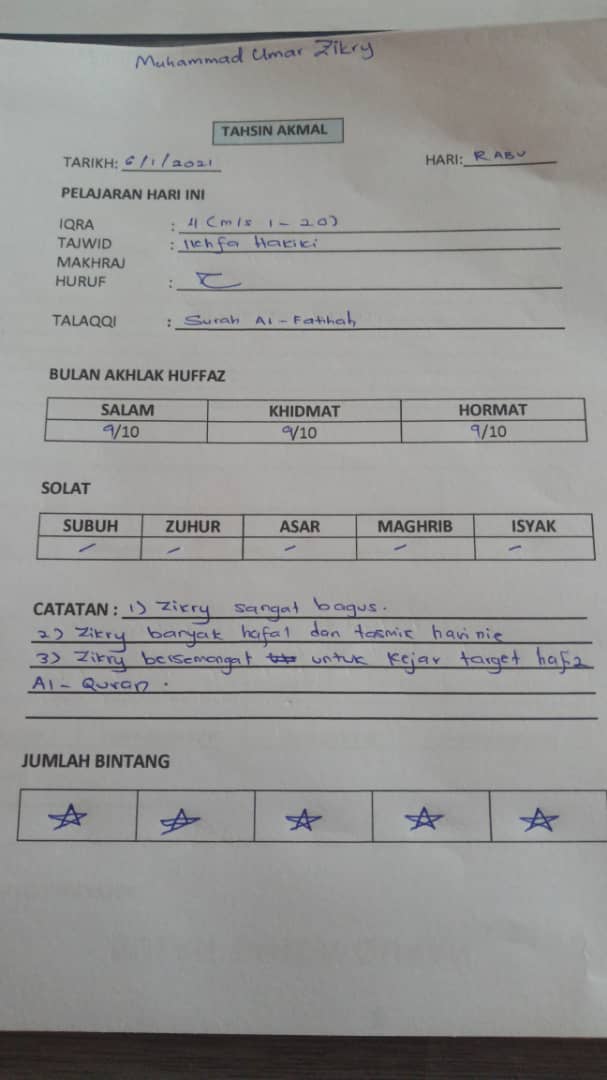 Muhammad Umar Zikry
TAHSIN AKMAL
TARIKH: 6/1/2021 HARI: RABU
PELAJARAN HARI INI
IQRA : 4 (m/s 1-20)
TAJWID : Ikhfa Hakiki
MAKHRAJ
HURUF :
TALAQQI : Surah Al-Fatihah
BULAN AKHLAK HUFFAZ
SALAM KHIDMAT HORMAT
9/10 9/10 9/10
SOLAT
SUBUH ZUHUR ASAR MAGHRIB ISYAK
/ / / / /
CATATAN : 1) Zikry sangat bagus.
2) Zikry banyak hafal dan tasmik hari nie
3) Zikry bersemangat untuk kejar target hafiz
Al-Quran.
JUMLAH BINTANG